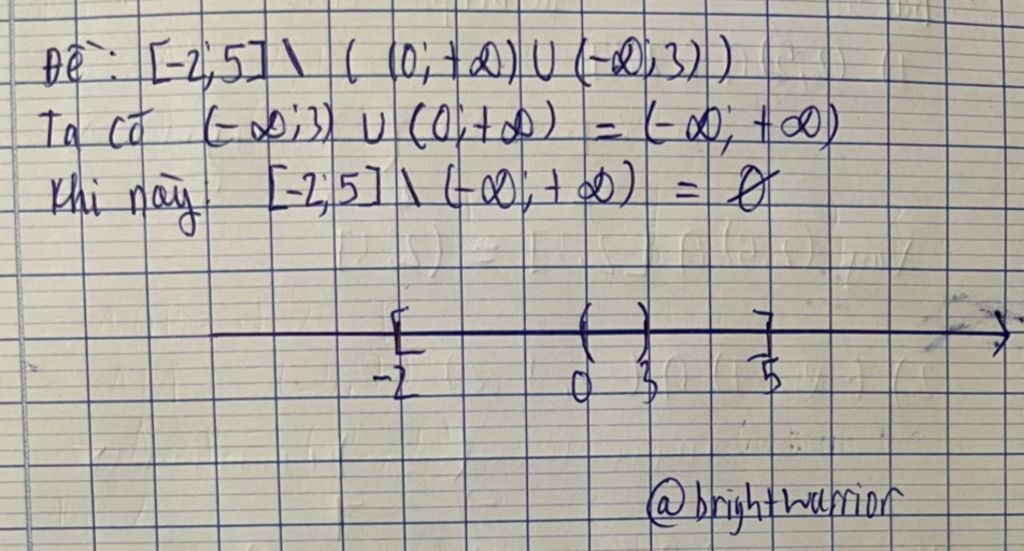 Đề: [-2;5] \ ( (0;+∞) ∪ (-∞;3) )
Ta có (-∞;3) ∪ (0;+∞) = (-∞; +∞)
Khi này: [-2;5] \ (-∞;+∞) = ∅
[ ( ) ]
-2 0 3 5
@brightwarrior